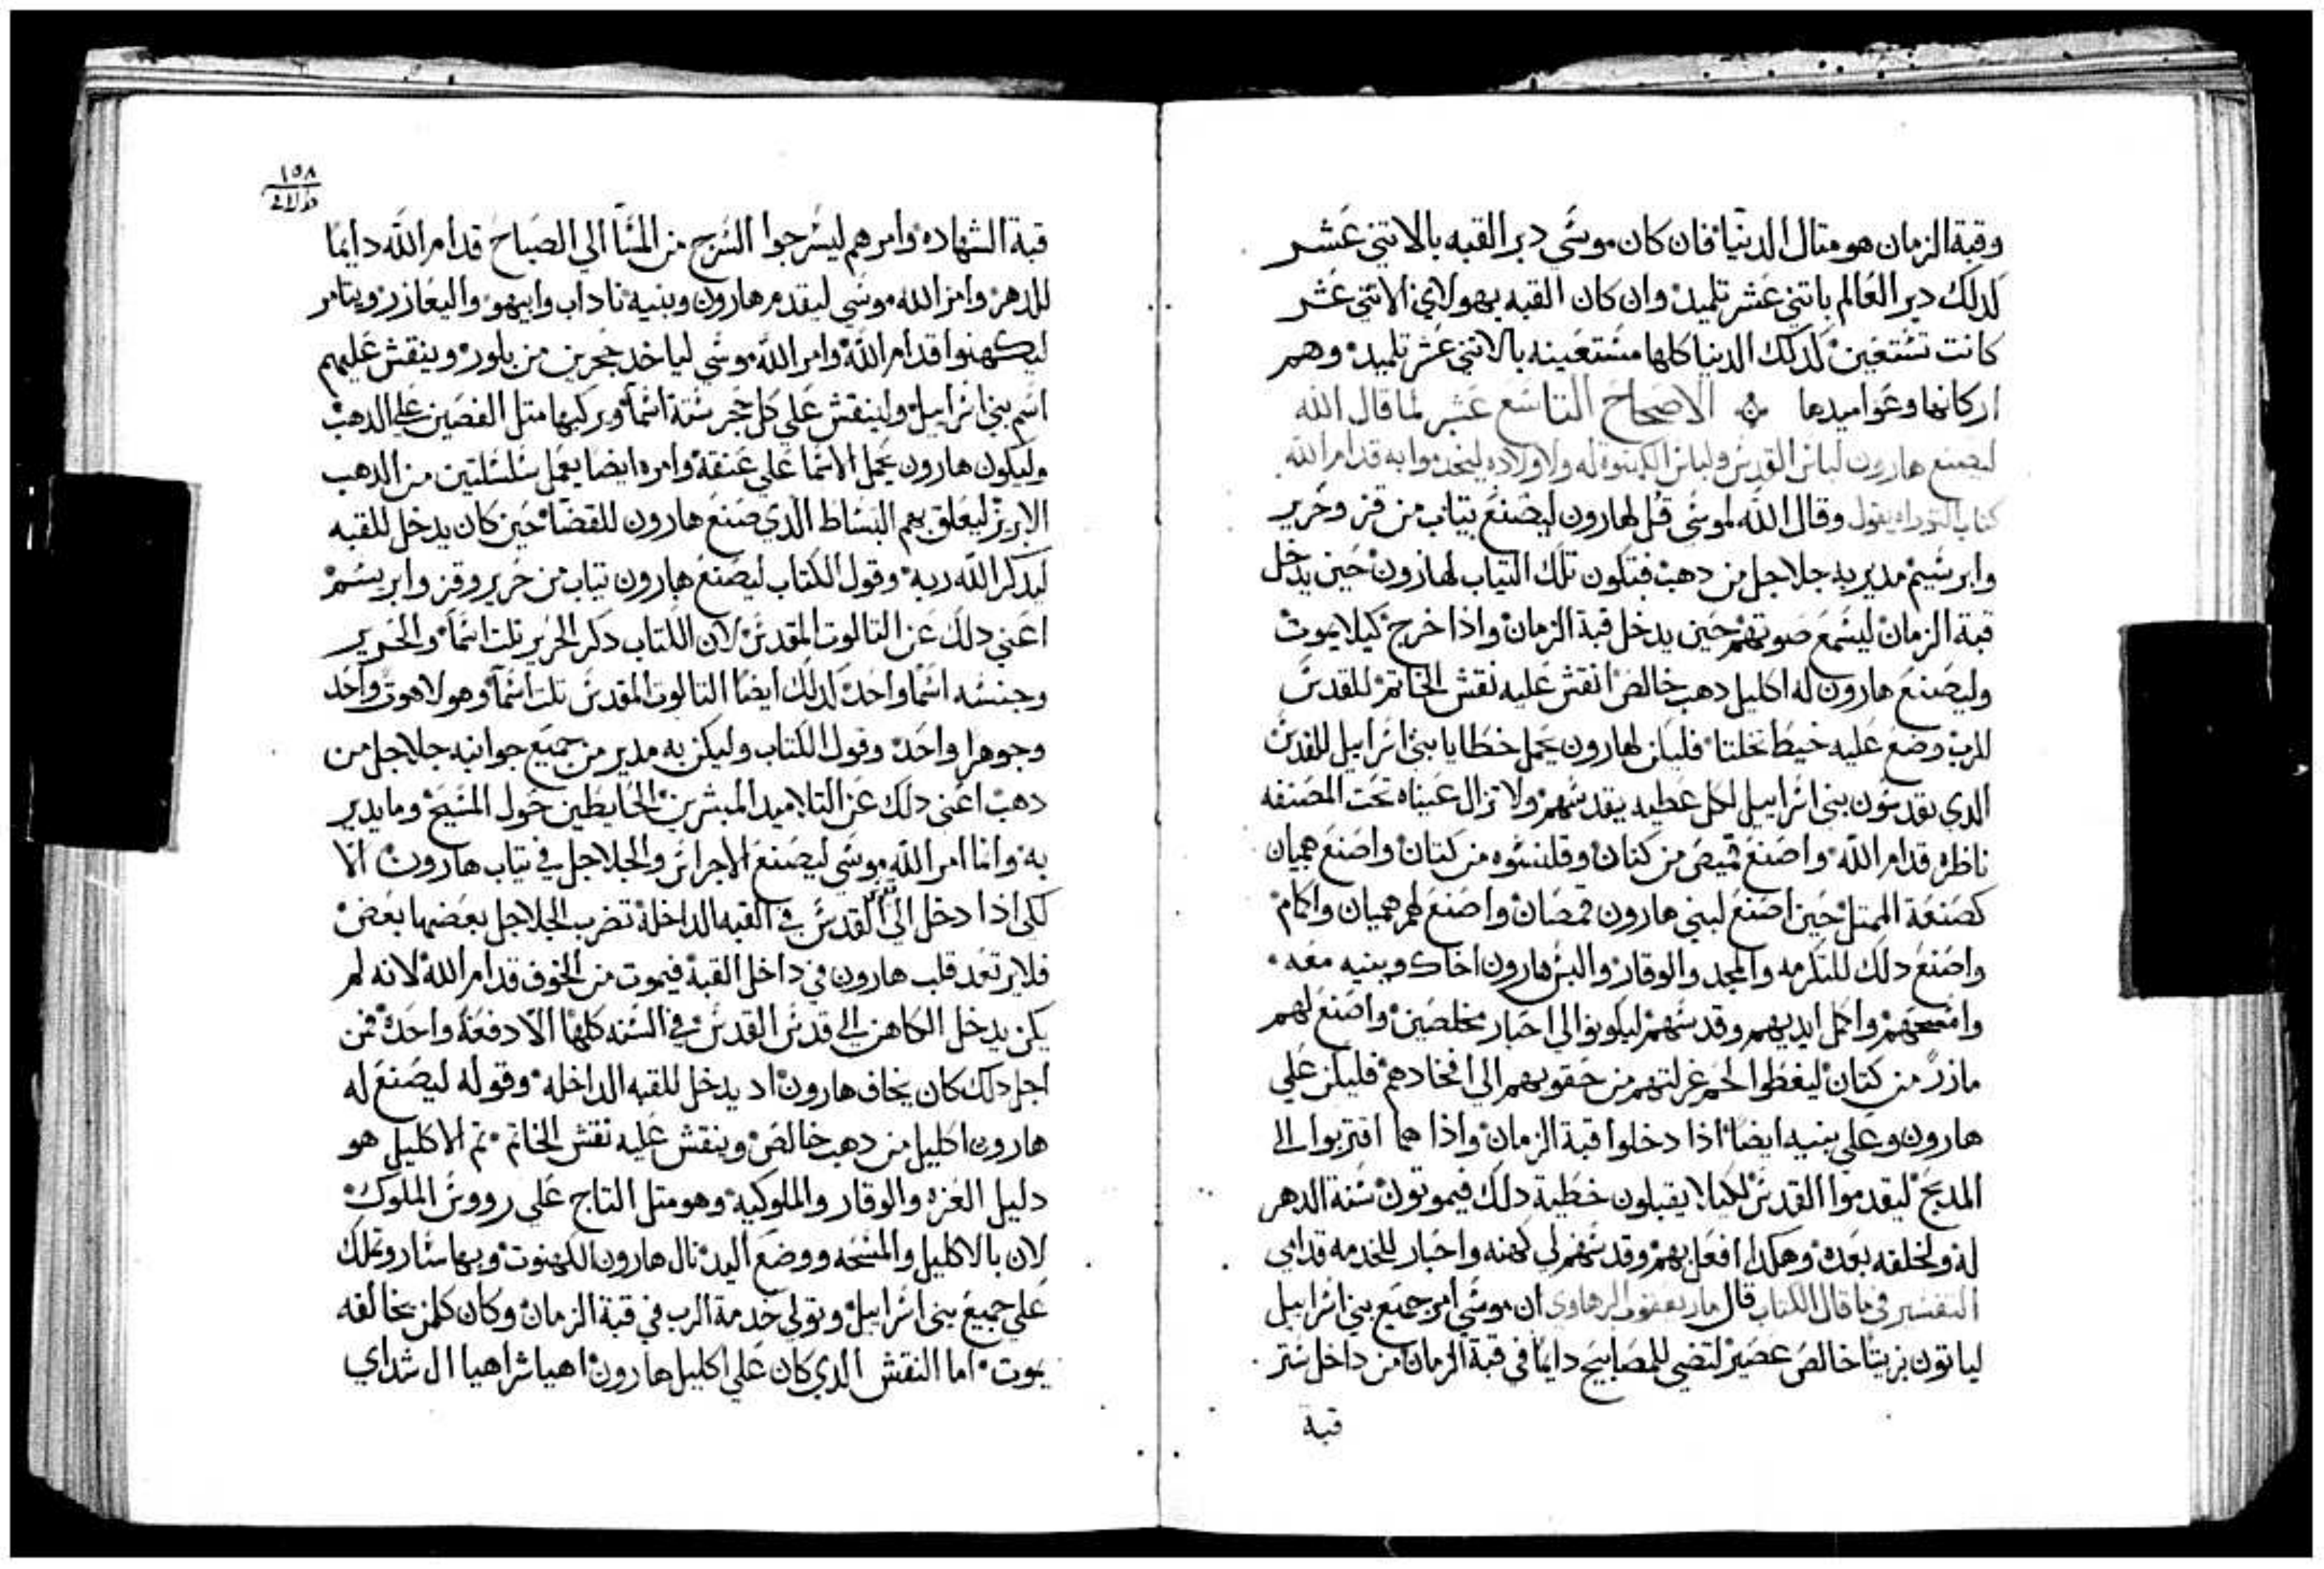 وقبة الزمان هو متال الدنيا فان كان موسى دبر القبه بالاتني عشر
لدلك دبر العالم باتني عشر تلميد وان كان القبه بهولاي الاتني عشر
كانت تستعين لدلك الدنيا كلها مستعينه بالاتني عشر تلميد وهم
اركانها وعواميدها الاصحاح التاسع عشر لما قال الله
ليصنع هارون لباس القدس ولباس الكهنوة له ولاولاده ليخدموا به قدام الله
كتاب التوراه يقول وقال الله لموسى قل لهارون ليصنع بتياب من قز وحرير
وابرسيم مدير به جلاجل من دهب فتكون تلك التياب لهارون حين يدخل
قبة الزمان ليسمع صوتهم حين يدخل قبة الزمان واذا خرج كيلا يموت
وليصنع هارون له اكليل دهب خالص انقش عليه نقش الخاتم للقدس
للرب وضع عليه خيط تخلتا فلياس لهارون يحمل خطايا بني اسراييل للقدس
الدي يقدسون بني اسراييل لكل عطيه يقدسهم ولا تزال عيناه تحت المصنفه
ناظره قدام الله واصنع قميص من كتان وقلنسوه من كتان واصنع هميان
كصنعة الممتل حين اصنع لبني هارون قمصان واصنع لهم هميان واكمام
واصنع دلك للتكرمه والمجد والوقار والبس هارون اخاك وبنيه معه
وامسحهم واكمل ايديهم وقدسهم ليكونوا لي احبار مخلصين واصنع لهم
مازر من كتان ليغطوا لحم غرلتهم من حقويهم الي افخادهم فليكن علي
هارون وعلي بنيه ايضا اذا دخلوا قبة الزمان واذا هما اقتربوا الي
المدبح ليقدموا القدس لكيلا يقبلون خطية دلك فيموتون سنة الدهر
له ولخلفه بعده وهكدا افعل بهم وقدسهم لي كهنه واحبار للخدمه قدامي
التفسير في ما قال الكتاب قال مار يعقوب الرهاوي ان موسى امر جميع بني اسراييل
لياتون بزيتا خالص عصير لتضي للمصابيح دايما في قبة الزمان من داخل ستر
قبة
١٥٨
قبة الشهاده وامرهم ليسرجوا السرج من المسا الي الصباح قدام الله دايما
للدهر وامر الله موسي ليقدم هارون وبنيه ناداب وابيهو واليعازر ويتامر
ليكهنوا قدام الله وامر الله موسي لياخد حجرين من بلور وينقش عليهم
اسم بني اسراييل ولينقش علي كل حجر ستة اسما ويركبها متل الفصين علي الدهب
وليكون هارون يحمل الاسما علي عنقه وامره ايضا يعمل سلسلتين من الدهب
الابريز ليعلق بهم البساط الدي صنع هارون للقضا حين كان يدخل للقبه
ليدكر الله ربه وقول الكتاب ليصنع هارون تياب من حرير وقز وابريسم
اعني دلك عن التالوت المقدس لان الكتاب دكر الحرير تلت اسما والحرير
وجنسه اسما واحد لدلك ايضا التالوت المقدس تلت اسما وهو لاهوت واحد
وجوهرا واحد وقول الكتاب وليكن به مدير من جميع جوانبه جلاجل من
دهب اعني دلك عن التلاميد المبشرين الحايطين حول المسيح وما يدير
به وانما امر الله موسي ليصنع الاجراس والجلاجل في تياب هارون الا
لكي اذا دخل الي القدس في القبه الداخلة تضرب الجلاجل بعضها بعض
فلا يرتعد قلب هارون في داخل القبة فيموت من الخوف قدام الله لانه لم
يكن يدخل الكاهن الي قدس القدس في السنه كلها الا دفعة واحده فمن
اجل دلك كان يخاف هارون اد يدخل للقبه الداخله وقوله ليصنع له
هارون اكليل من دهب خالص وينقش عليه نقش الخاتم تم الاكليل هو
دليل العزه والوقار والملوكيه وهو متل التاج علي رووس الملوك
لان بالاكليل والمسحه ووضع اليد نال هارون الكهنوت وبها ساروتملك
علي جميع بني اسراييل وتولي خدمة الرب في قبة الزمان وكان كلمن يخالفه
يموت اما النقش الدي كان علي اكليل هارون اهيا شراهيا ال شداي